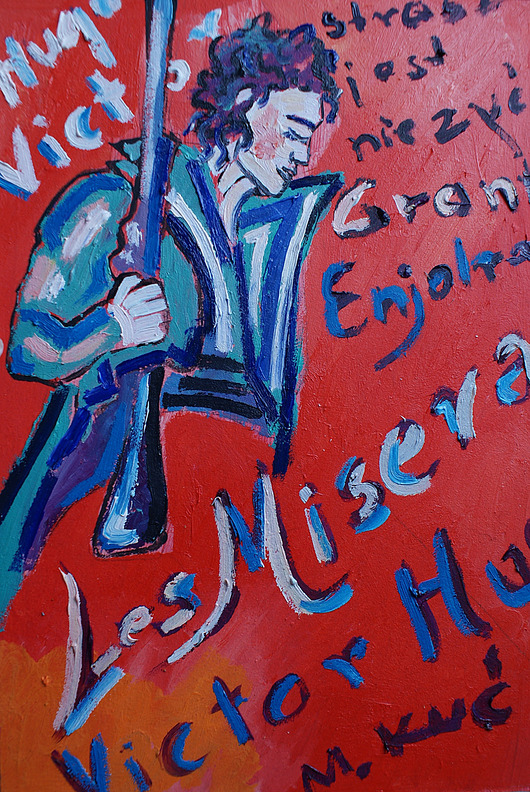 Hugo
Victo
strasz
jest
nie żyć
Gran
Enjolra
Les Misera
Victor Hu
M. Kuć